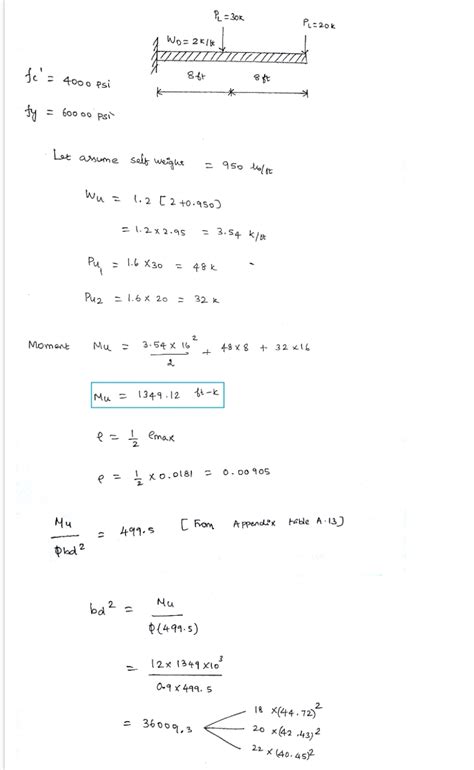 PL = 30k
PL = 20k
WD = 2k/ft
8 ft 8 ft
fc' = 4000 psi
fy = 60000 psi
Let assume self weight = 950 lb/ft
Wu = 1.2 [2+0.950)
= 1.2 x 2.95 = 3.54 k/ft
Pu1 = 1.6 x 30 = 48 k
Pu2 = 1.6 x 20 = 32 k
Moment Mu = 3.54 x 16² / 2 + 48 x 8 + 32 x 16
Mu = 1349.12 ft-k
ρ = 1/2 ρmax
ρ = 1/2 x 0.0181 = 0.00905
Mu / φbd² = 499.5 [From Appendix table A.13]
bd² = Mu / φ(499.5)
= 12 x 1349 x 10³ / 0.9 x 499.5
= 36009.3
18 x (44.72)²
20 x (42.43)²
22 x (40.45)²